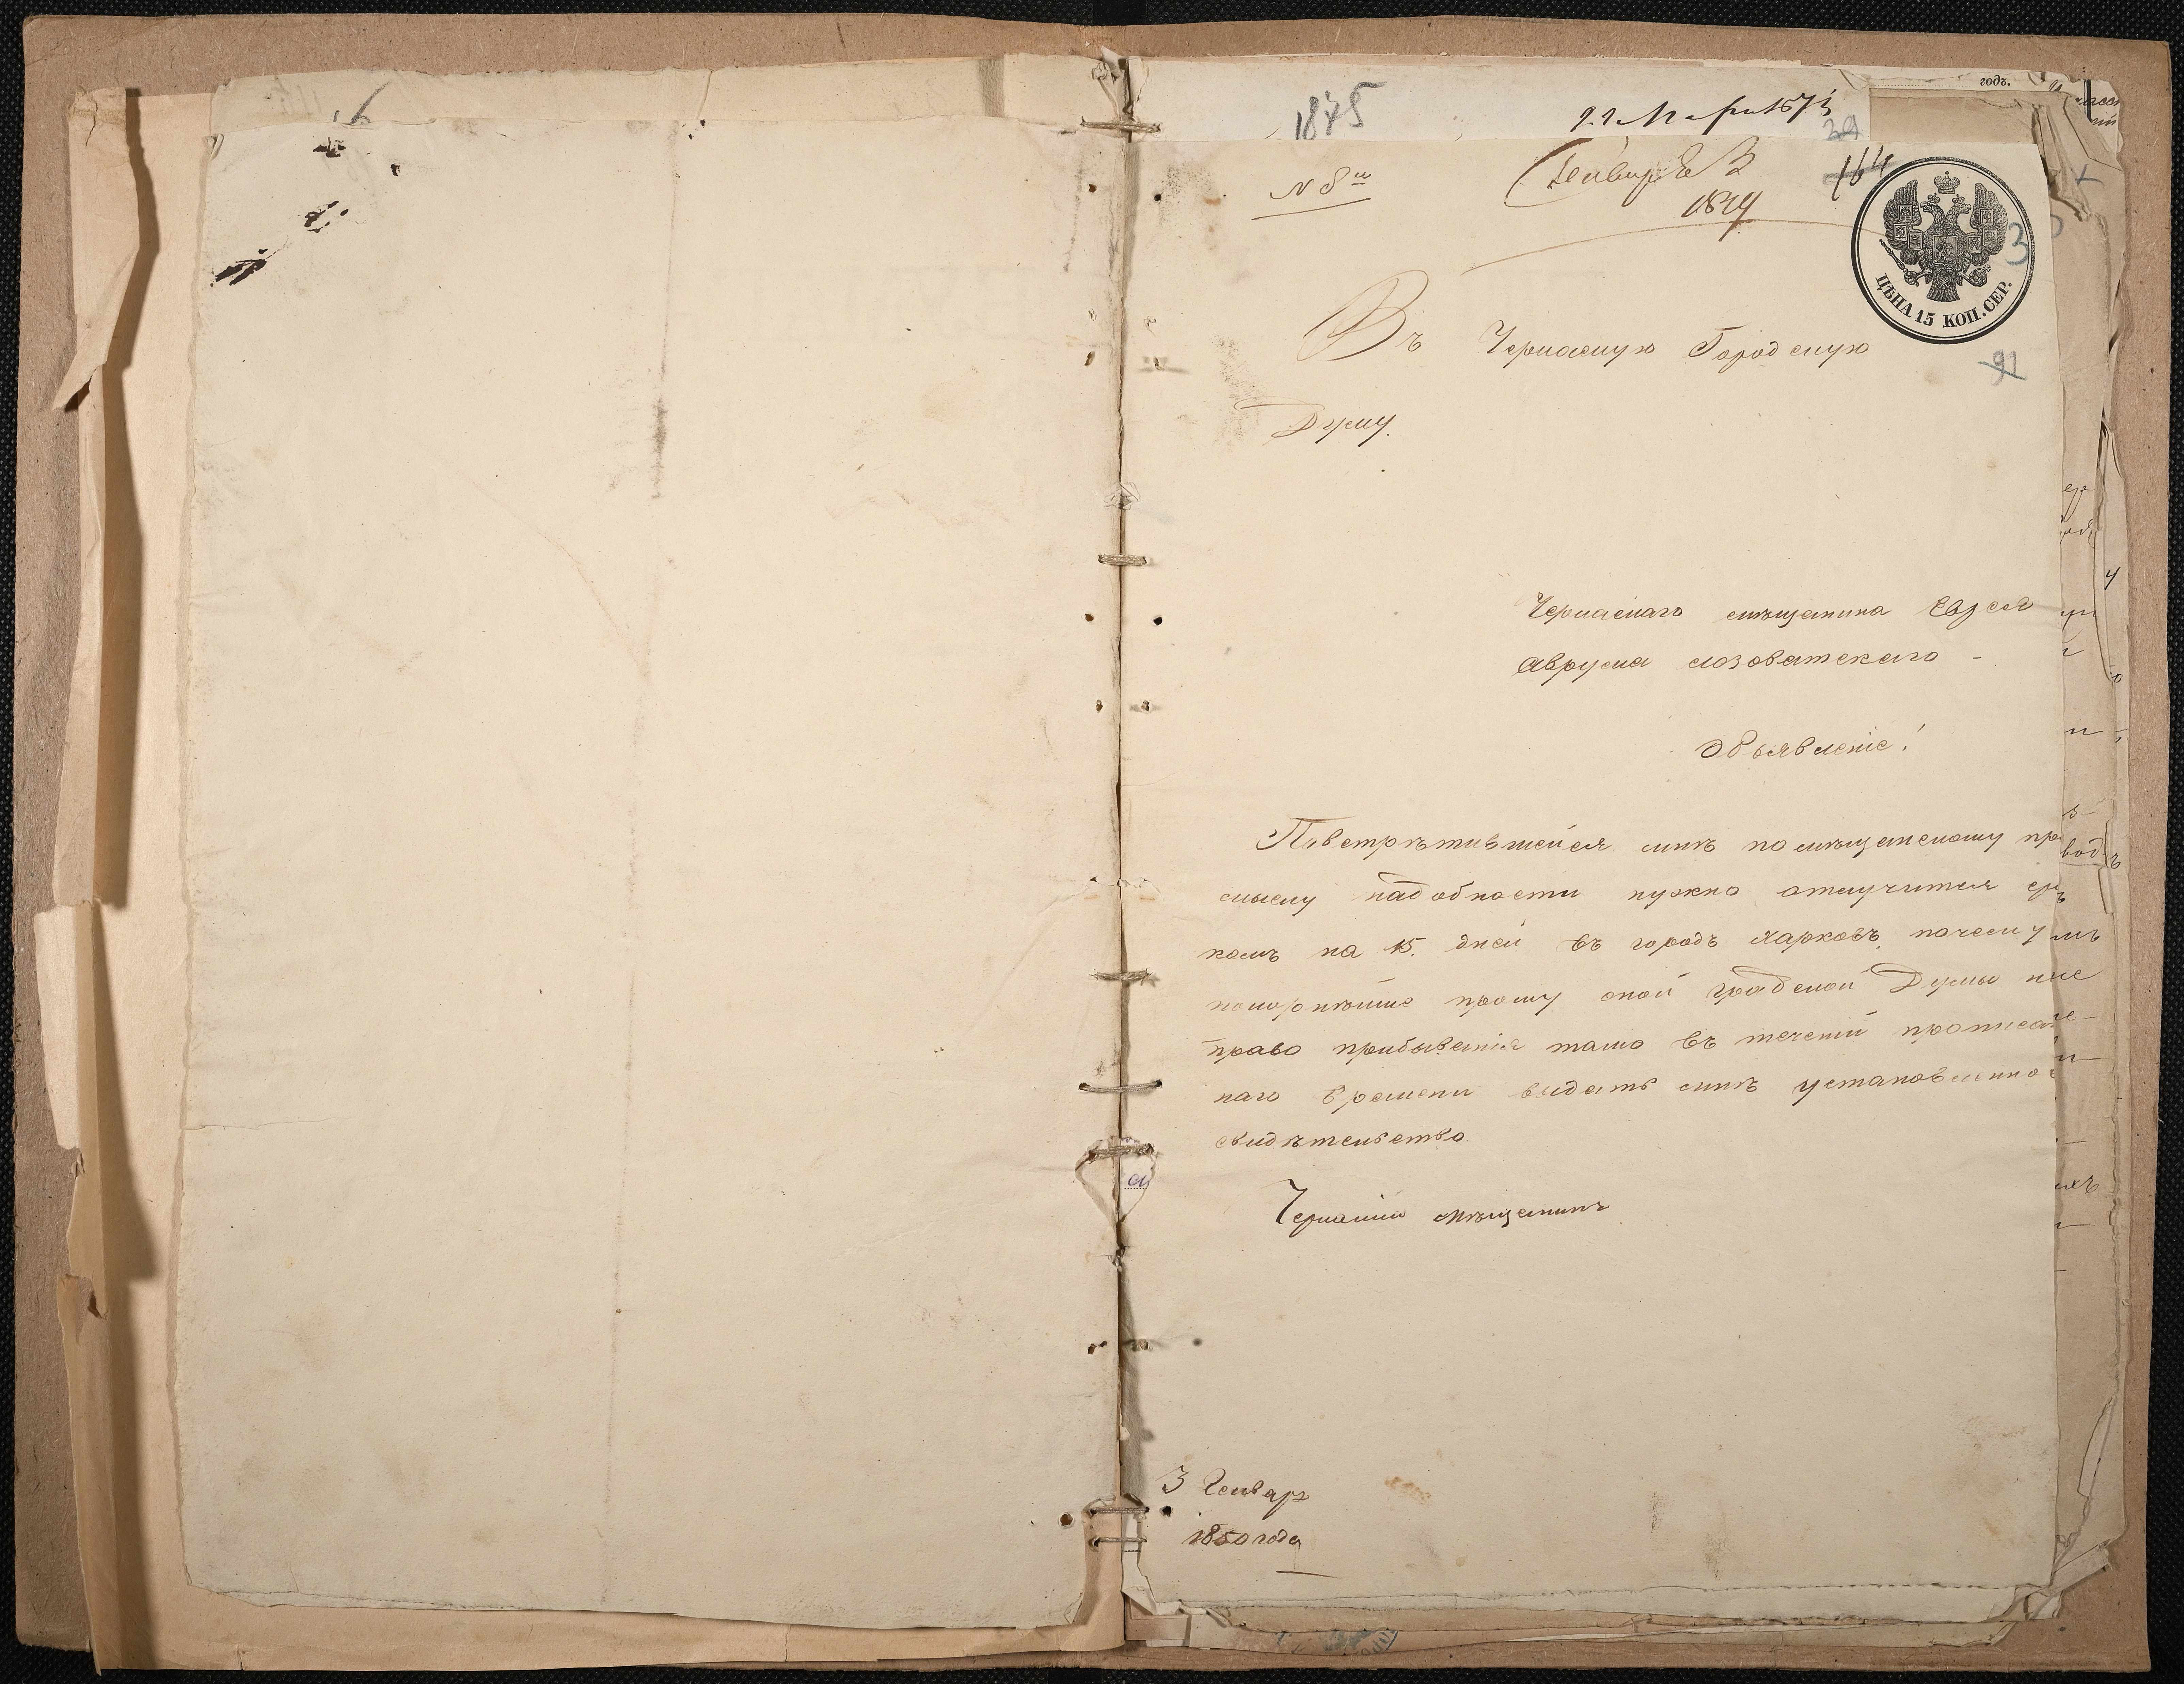 1875
годъ.
39
№ 8й
Генваря 3
164
3
ЦѢНА 15 КОП. СЕР.
Въ Черкаскую Городскую
91
Думу.
Черкаскаго мѣщанина Евзеля
Аврума Лозоватскаго -
Объявленіе!
Повстрѣтившейся мнѣ по мѣщанскому про
мыслу надобности нужно отлучится сро
комъ на 15. дней въ городъ Харковъ, почему
покорнѣйше прошу оной Градской Думы на
право прибыванія тамо въ теченіи прописан
наго времени выдать мнѣ установленное
свидѣтельство
Черкаскій мѣщанинъ
3 Генваря
1850 года